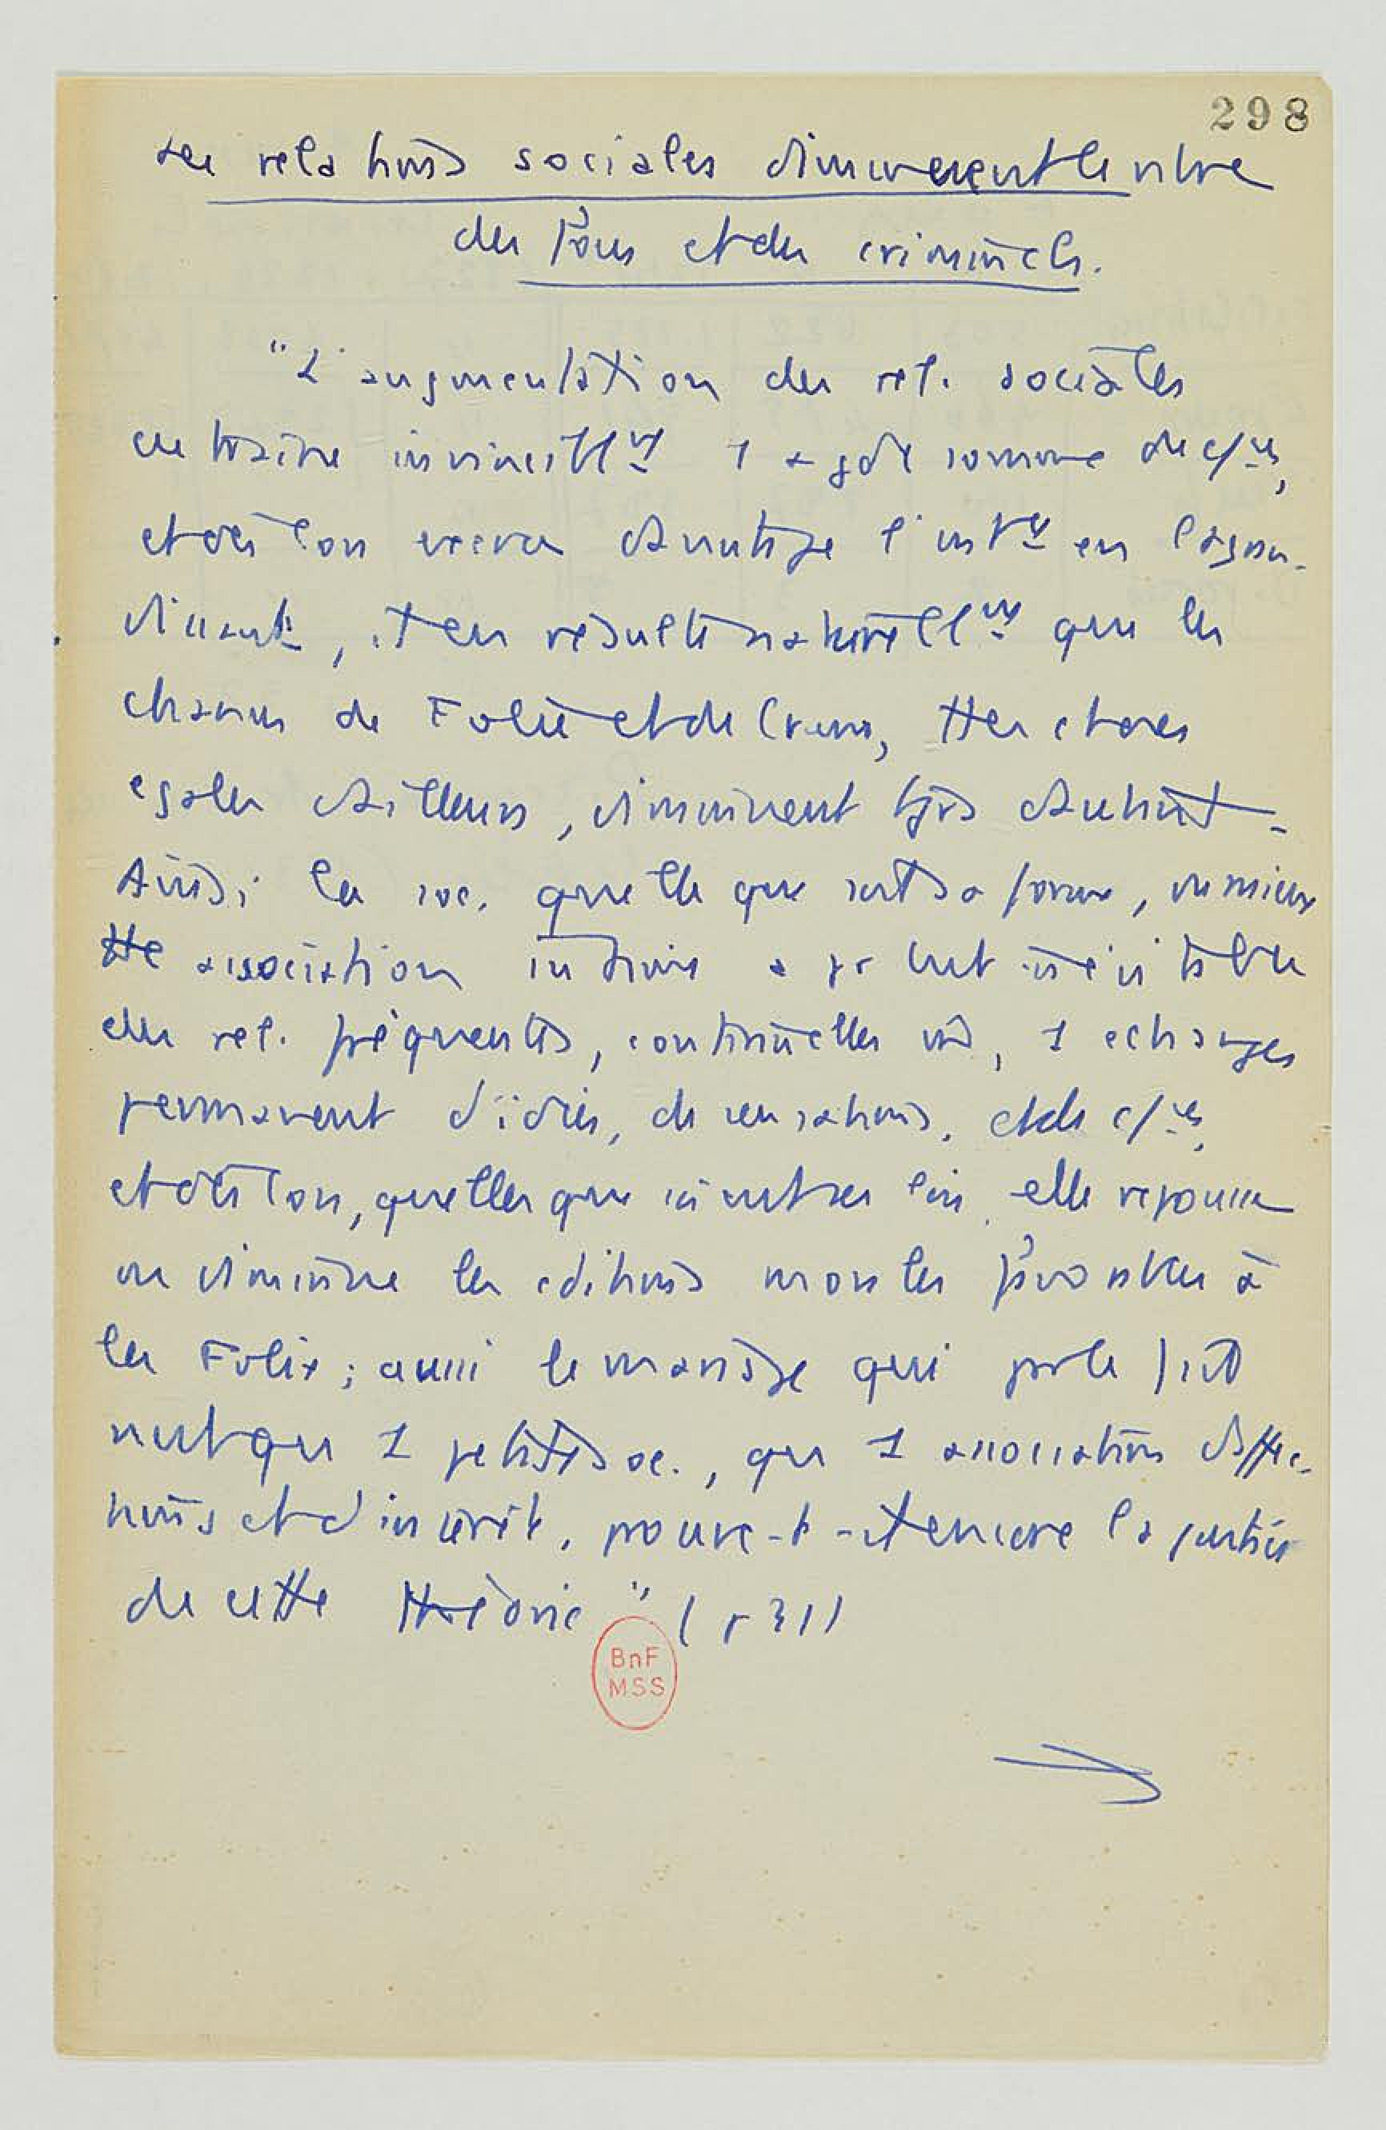 298
Les relations sociales diminuent le nbre
des Fous et des criminels.
"L'augmentation des rel. sociales
entraîne invinciblt 1 + gde somme de c/ces,
et dès lors exerce davantage l'intce en l'agran-
dissant, il en résulte naturellmt que les
chances de Folie et de Crime, ttes choses
egales d'ailleurs, diminuent tjrs d'autant.
Ainsi la soc. quelle que soit sa forme, ou mieux
tte association intime a pr but inévitable
des rel. fréquentes, continuelles mê, 1 echanges
permanent d'idées, de sensations, et de c/ces,
et dès lors, quelles que soient ses lois, elle repousse
ou diminue les cditions morales favorables à
la Folie; aussi le mariage qui par le fait
n'est qu 1 petite soc., qu 1 association d'affec-
tions et d'intérêt, prouve-t-il encore la justice
de cette théorie" (p 31)
BnF
MSS